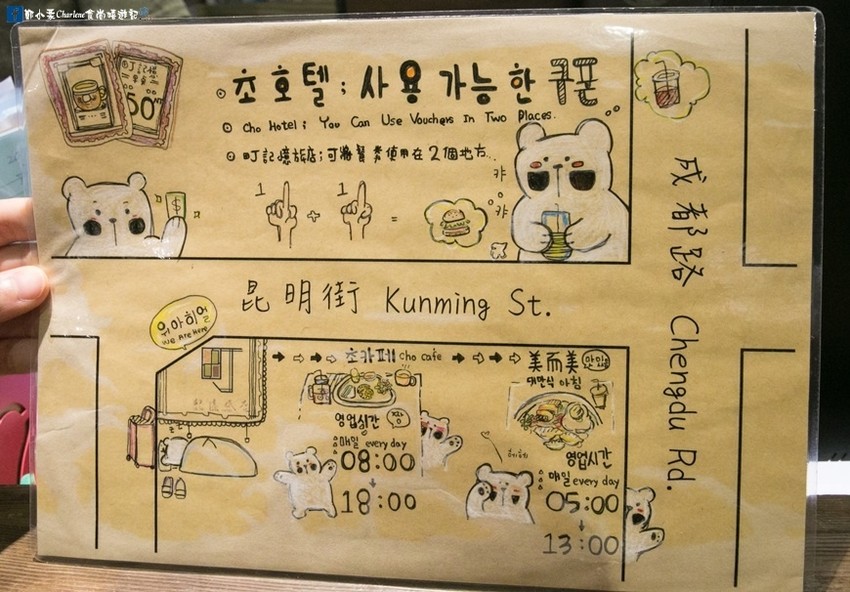 郭小柔Charlene食尚嬉遊記
町記憶
50
초호텔; 사용 가능한 쿠폰
Cho Hotel; You Can Use Vouchers In Two Places.
町記憶旅店;可將餐券使用在2個地方.
1 + 1 =
$
캬
캬
成都路 Chengdu Rd.
昆明街 Kunming St.
위아히얼
We Are Here
초카페 cho cafe
美而美
맛있음
대만식 아침
영업시간
짱
매일 every day
08:00
18:00
영업시간
매일 every day
05:00
13:00